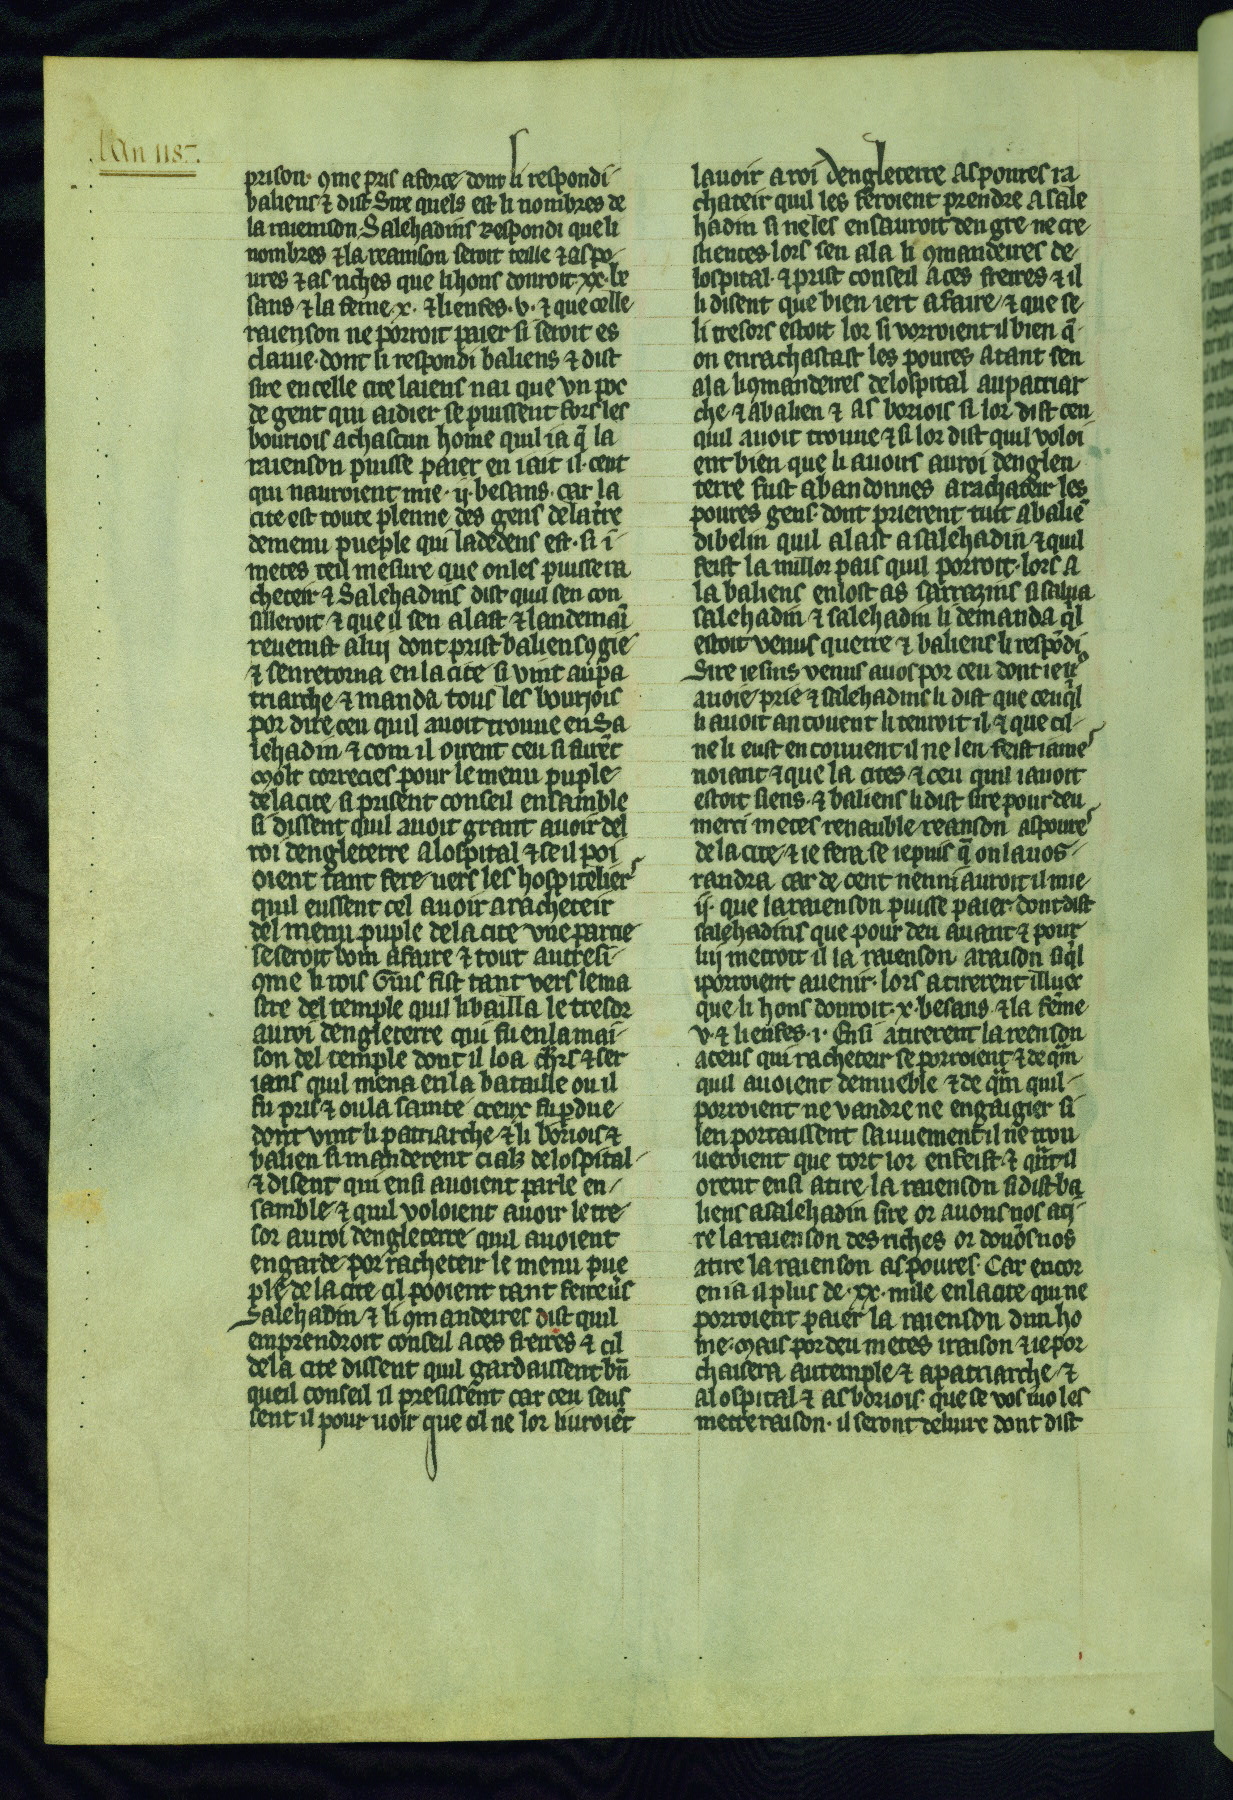 lan 1187.
prison· ꝯme pris a force· dont li respondi
baliens ⁊ dist Sire quels est li nombres de
la raienson· Salehadins respondi que li
nombres ⁊ la reanson seroit teille ⁊ as po
ures ⁊ as riches que li hons donroit ·xx· be
sans ⁊ la feme ·x· ⁊ li enfes ·v· ⁊ que celle
raienson ne porroit paier si seroit es
claue· dont li respondi baliens ⁊ dist
sire en celle cite laiens nai que vn poc
de gent qui aidier se puissent fors les
bouriois a chascun home quil ia q̄ la
raienson puisse paier en i ait il cent
qui nauroient mie ·ij· besans· car la
cite est toute plenne des gens de la t̄re
de menu pueple qui la dedens est· si i
metes teil mesure que on les puisse ra
cheteir ⁊ Salehadins dist quil sen con
silleroit ⁊ que il sen alast ⁊ landemaī
reuenist a luj dont prist baliens ꝯgie
⁊ sen retorna en la cite si vint au pa
triarche ⁊ manda tous les bourjois
por dire ceu quil auoit trouue en Sa
lehadin ⁊ com il oirent ceu si furēt
molt correcies pour le menu puple
de la cite si prisent conseil ensamble
si dissent quil auoit grant auoir del
roi dengleterre a lospital ⁊ se il poi
oient tant fere vers les hospitelier
quil eussent cel auoir a racheteir
del menu puple de la cite vne partie
se seroit bom a faire ⁊ tout autresi
ꝯme li rois Guis fist tant vers le ma
stre del temple quil li bailla le tresor
au roi dengleterre qui fu en la mai
son del temple dont il loa chrs ⁊ ser
ians quil mena en la bataille ou il
fu pris ⁊ ou la sainte creux fu pdue
dont vint li patriarche ⁊ li boriois ⁊
balien si manderent cials de lospital
⁊ disent qui ensi auoient parle en
samble ⁊ quil voloient auoir le tre
sor au roi dengleterre quil auoient
en garde por racheteir le menu pue
ple de la cite cil pooient tant fere us
Salehadin ⁊ li ꝯmandeires dist quil
emprendroit conseil a ces freires ⁊ cil
de la cite dissent quil gardaussent bn̄
queil conseil il presissent car ceu seus
sent il pour uoir que cil ne lor liuroiēt
lauoir a roi dengleterre as poures ra
chateir quil les feroient prendre a sale
hadin si ne les en sauroit den gre ne cre
stientes· lors sen ala li ꝯmandeires de
lospital ⁊ prist conseil a ces freires ⁊ il
li disent que bien iert a faire ⁊ que se
li tresors estoit lor si vorroient il bien q̄
on en rachastast les poures atant sen
ala li ꝯmandeires de lospital au patriar
che ⁊ a balien ⁊ as boriois si lor dist ceu
quil auoit trouue ⁊ si lor dist quil voloi
ent bien que li auoirs au roi denglen
terre fust abandonnes a rachateir les
poures gens· dont prierent tuit a baliē
dibelin quil alast a salehadin ⁊ quil
feist la millor pais quil porroit· lors a
la baliens en lost as sarrazins si salua
salehadin ⁊ salehadin li demanda ql
estoit venus querre ⁊ baliens li respōdi
Sire ie sius venus a uos por ceu dont ie us
auoie prie ⁊ salehadins li dist que ceu ql
li auoit an couent li tenroit il ⁊ que cil
ne li eust en couuent il ne len feist iame
noiant ⁊ que la cites ⁊ ceu quil i auoit
estoit siens· ⁊ baliens li dist sire pour deu
merci metes renauble reanson as poure
de la cite ⁊ ie fera se ie puis q̄ on la uos
randra car de cent nenni auroit il mie
ij· que la raienson puisse paier· dont dist
salehadins que pour deu auant ⁊ pour
luj metroit il la raienson a raison si ql
i porroient auenir· lors atirerent illuec
que li hons donroit ·x· besans ⁊ la fēme
v· ⁊ li enfes ·i· Ensi atirerent la reenson
a ceus qui racheteir se porroient ⁊ de qm
quil auoient de mueble ⁊ de qm quil
porroient ne vandre ne engaigier si
len portaussent sauuement il ne trou
ueroient que tort lor en feist· ⁊ qnt il
orent ensi atire la raienson si dist ba
liens a salehadin sire or auons nos ati
re la raienson des riches or douōs nos
atire la raienson as poures· Car encor
en ia il plus de ·xx· mile en la cite qui ne
porroient paier la raienson dun ho
me· mais por deu metes i raison ⁊ ie por
chaisera au temple ⁊ a patriarche ⁊
a lospital ⁊ as boriois· que se vos i uoles
mettre raison· il seront deliure dont dist